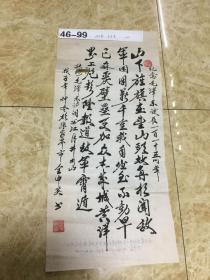 46-99
纪念毛泽东诞辰一百一十五周年
山下旌旗在望山头鼓角相闻敌
军围困万千重我自岿然不动早
已森严壁垒更加众志成城黄洋
界上炮声隆报道敌军宵遁
毛泽东词西江月井冈山
戊子年仲冬於张家界市
书